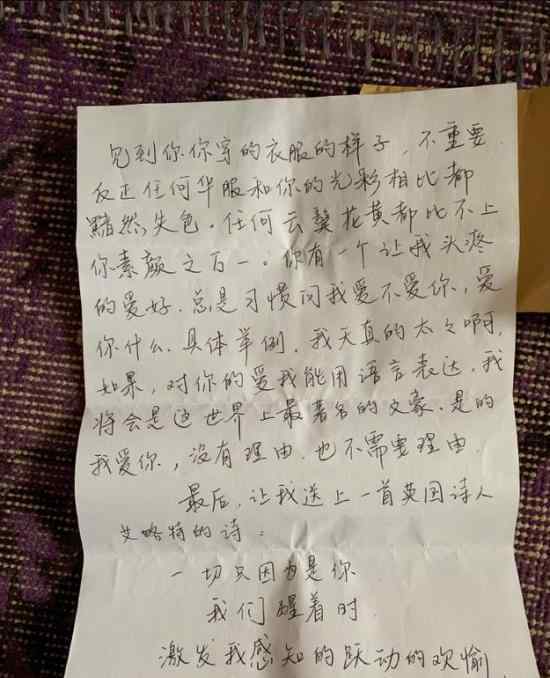 见到你你穿的衣服的样子，不重要
反正任何华服和你的光彩相比都
黯然失色。任何云鬓花黄都比不上
你素颜之万一。你有一个让我头疼
的爱好.总是习惯问我爱不爱你，爱
你什么.具体举例.我天真的太太啊，
如果，对你的爱我能用语言表达.我
将会是这世界上最著名的文豪.是的
我爱你，没有理由.也不需要理由.
最后,让我送上一首英国诗人
艾略特的诗：
一切只因为是你
我们醒着时
激发我感知的跃动的欢愉，